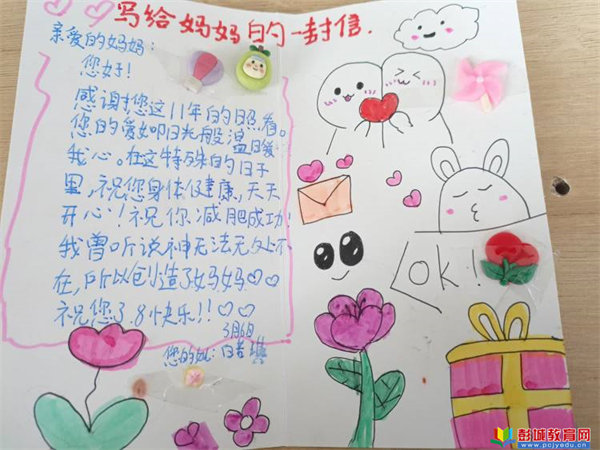 写给妈妈的一封信.
亲爱的妈妈:
您好!
感谢您这11年的日照看。
您的爱如日光般温日爱
我心。在这特殊的日子
里,祝您身体健康,天天
开心!祝你减肥成功!
我曾听说神无法无处不
在,所以创造了妈妈♡♡
祝您3.8快乐!!♡♡
3月6日
您的女儿:白若
OK!
彭城教育网
www.pcjyedu.cn